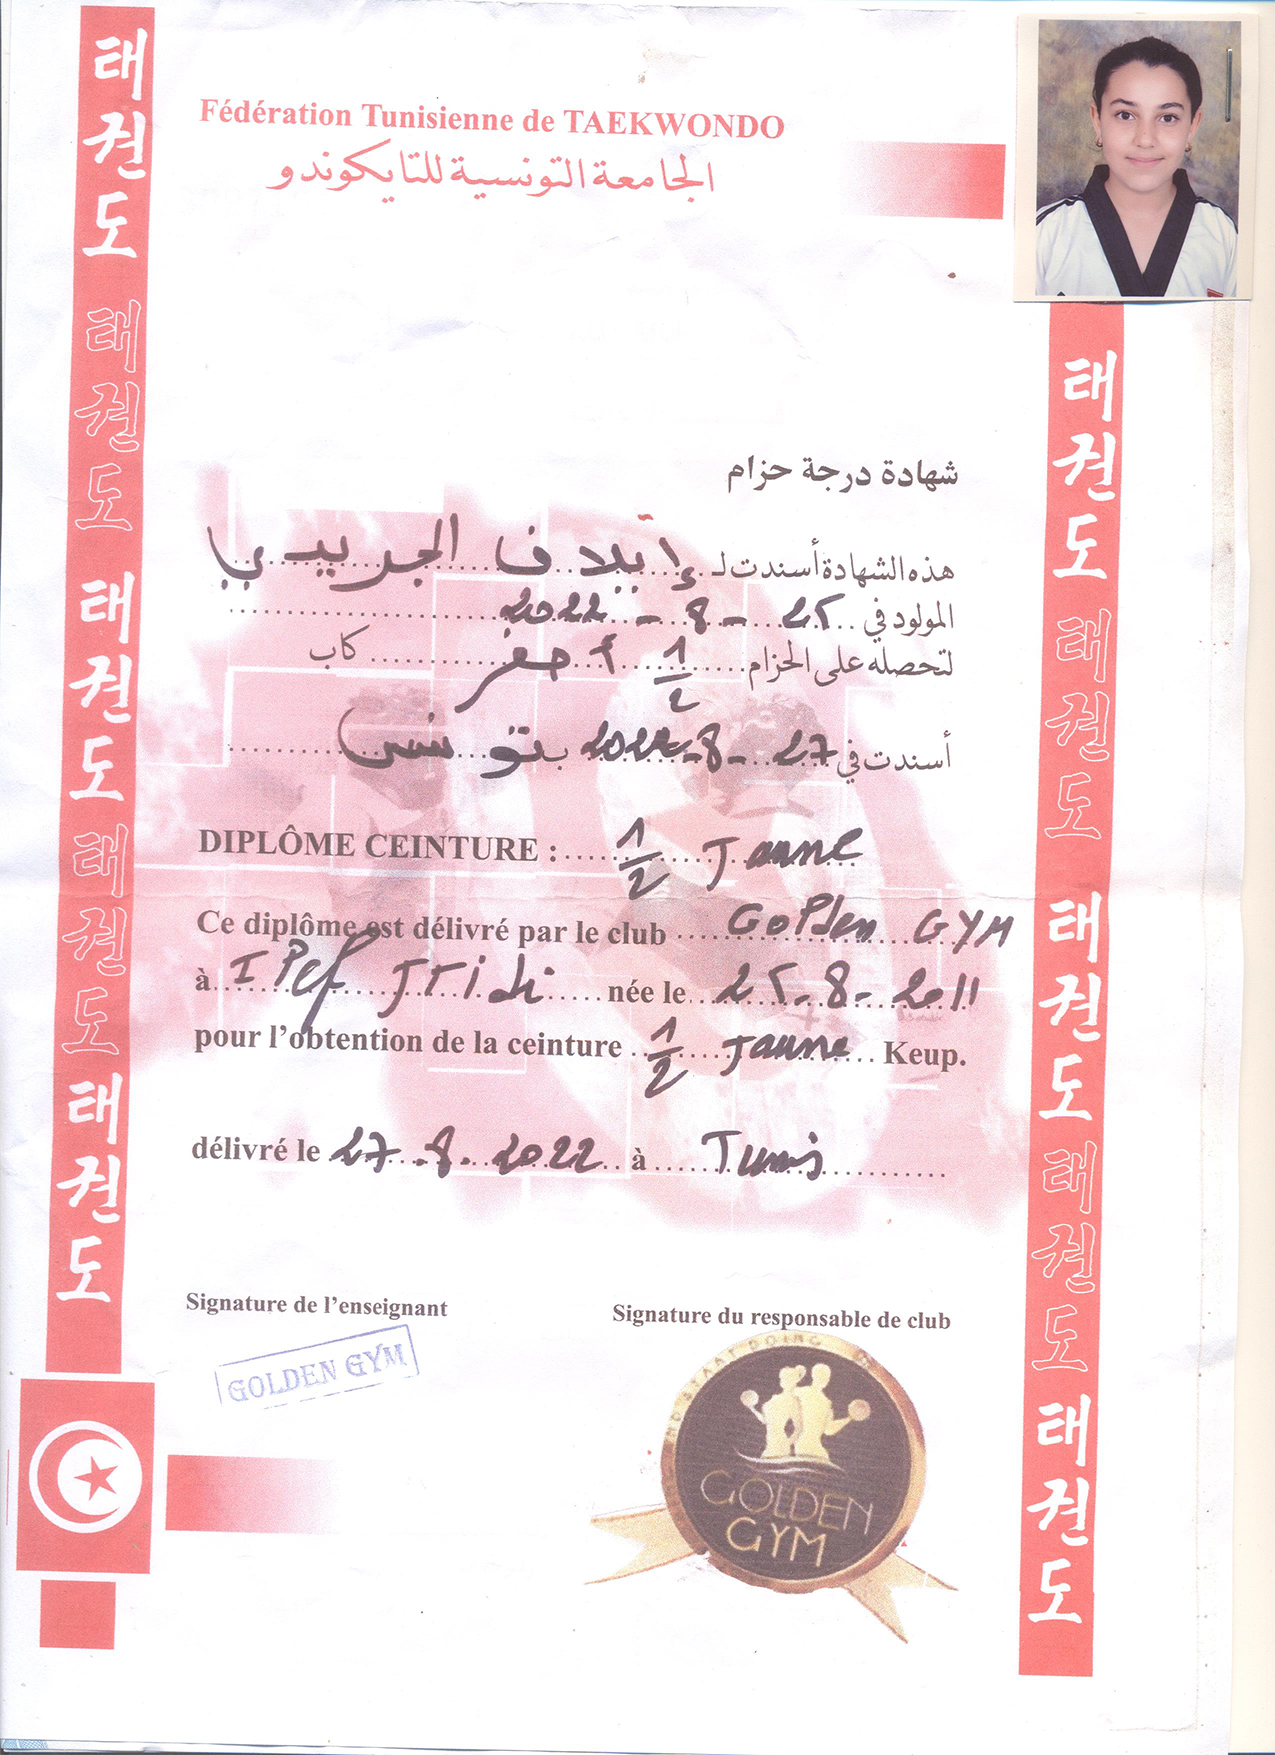 Fédération Tunisienne de TAEKWONDO
الجامعة التونسية للتايكوندو
شهادة درجة حزام
هذه الشهادة أسندت لـ إيلاف الجريدي
المولود في 25 - 8 - 2022
لتحصله على الحزام 1/2 أصفر كاب
أسندت في 27 - 8 - 2022 بـ تونس
DIPLÔME CEINTURE : 1/2 Jaune
Ce diplôme est délivré par le club Golden GYM
à née le 25-8-2011
pour l'obtention de la ceinture 1/2 Jaune Keup.
délivré le 27.8.2022 à Tunis
Signature de l'enseignant
Signature du responsable de club
GOLDEN GYM
GOLDEN
GYM
태권도 태권도 태권도 태권도 태권도
태권도 태권도 태권도 태권도 태권도